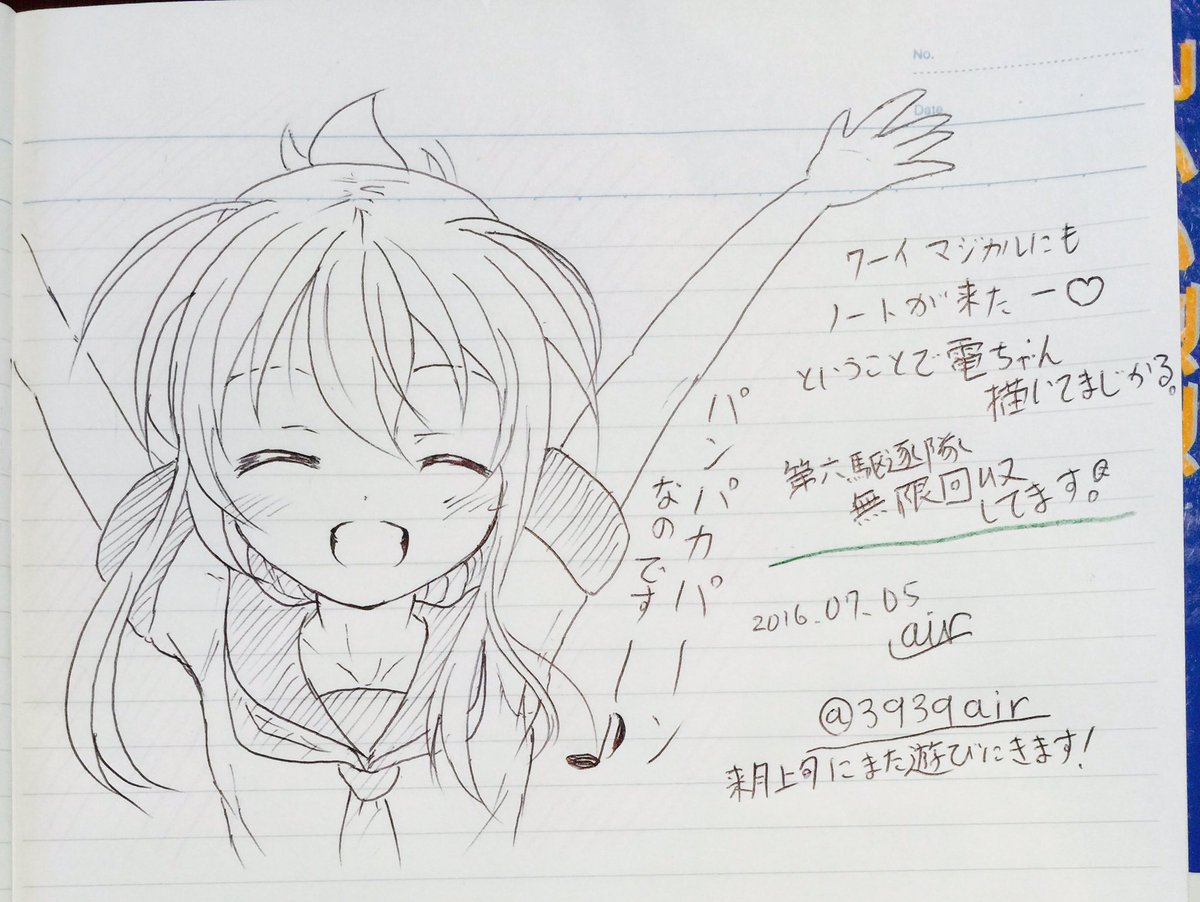 No.
Date
ワーイ マジカルにも
ノートが来たー♡
ということで電ちゃん
描いてまじかる。
第六駆逐隊
無限回収
してます!
パンパカパーン
なのですー♪
2016.07.05
air
@3939air
来月上旬にまた遊びにきます!